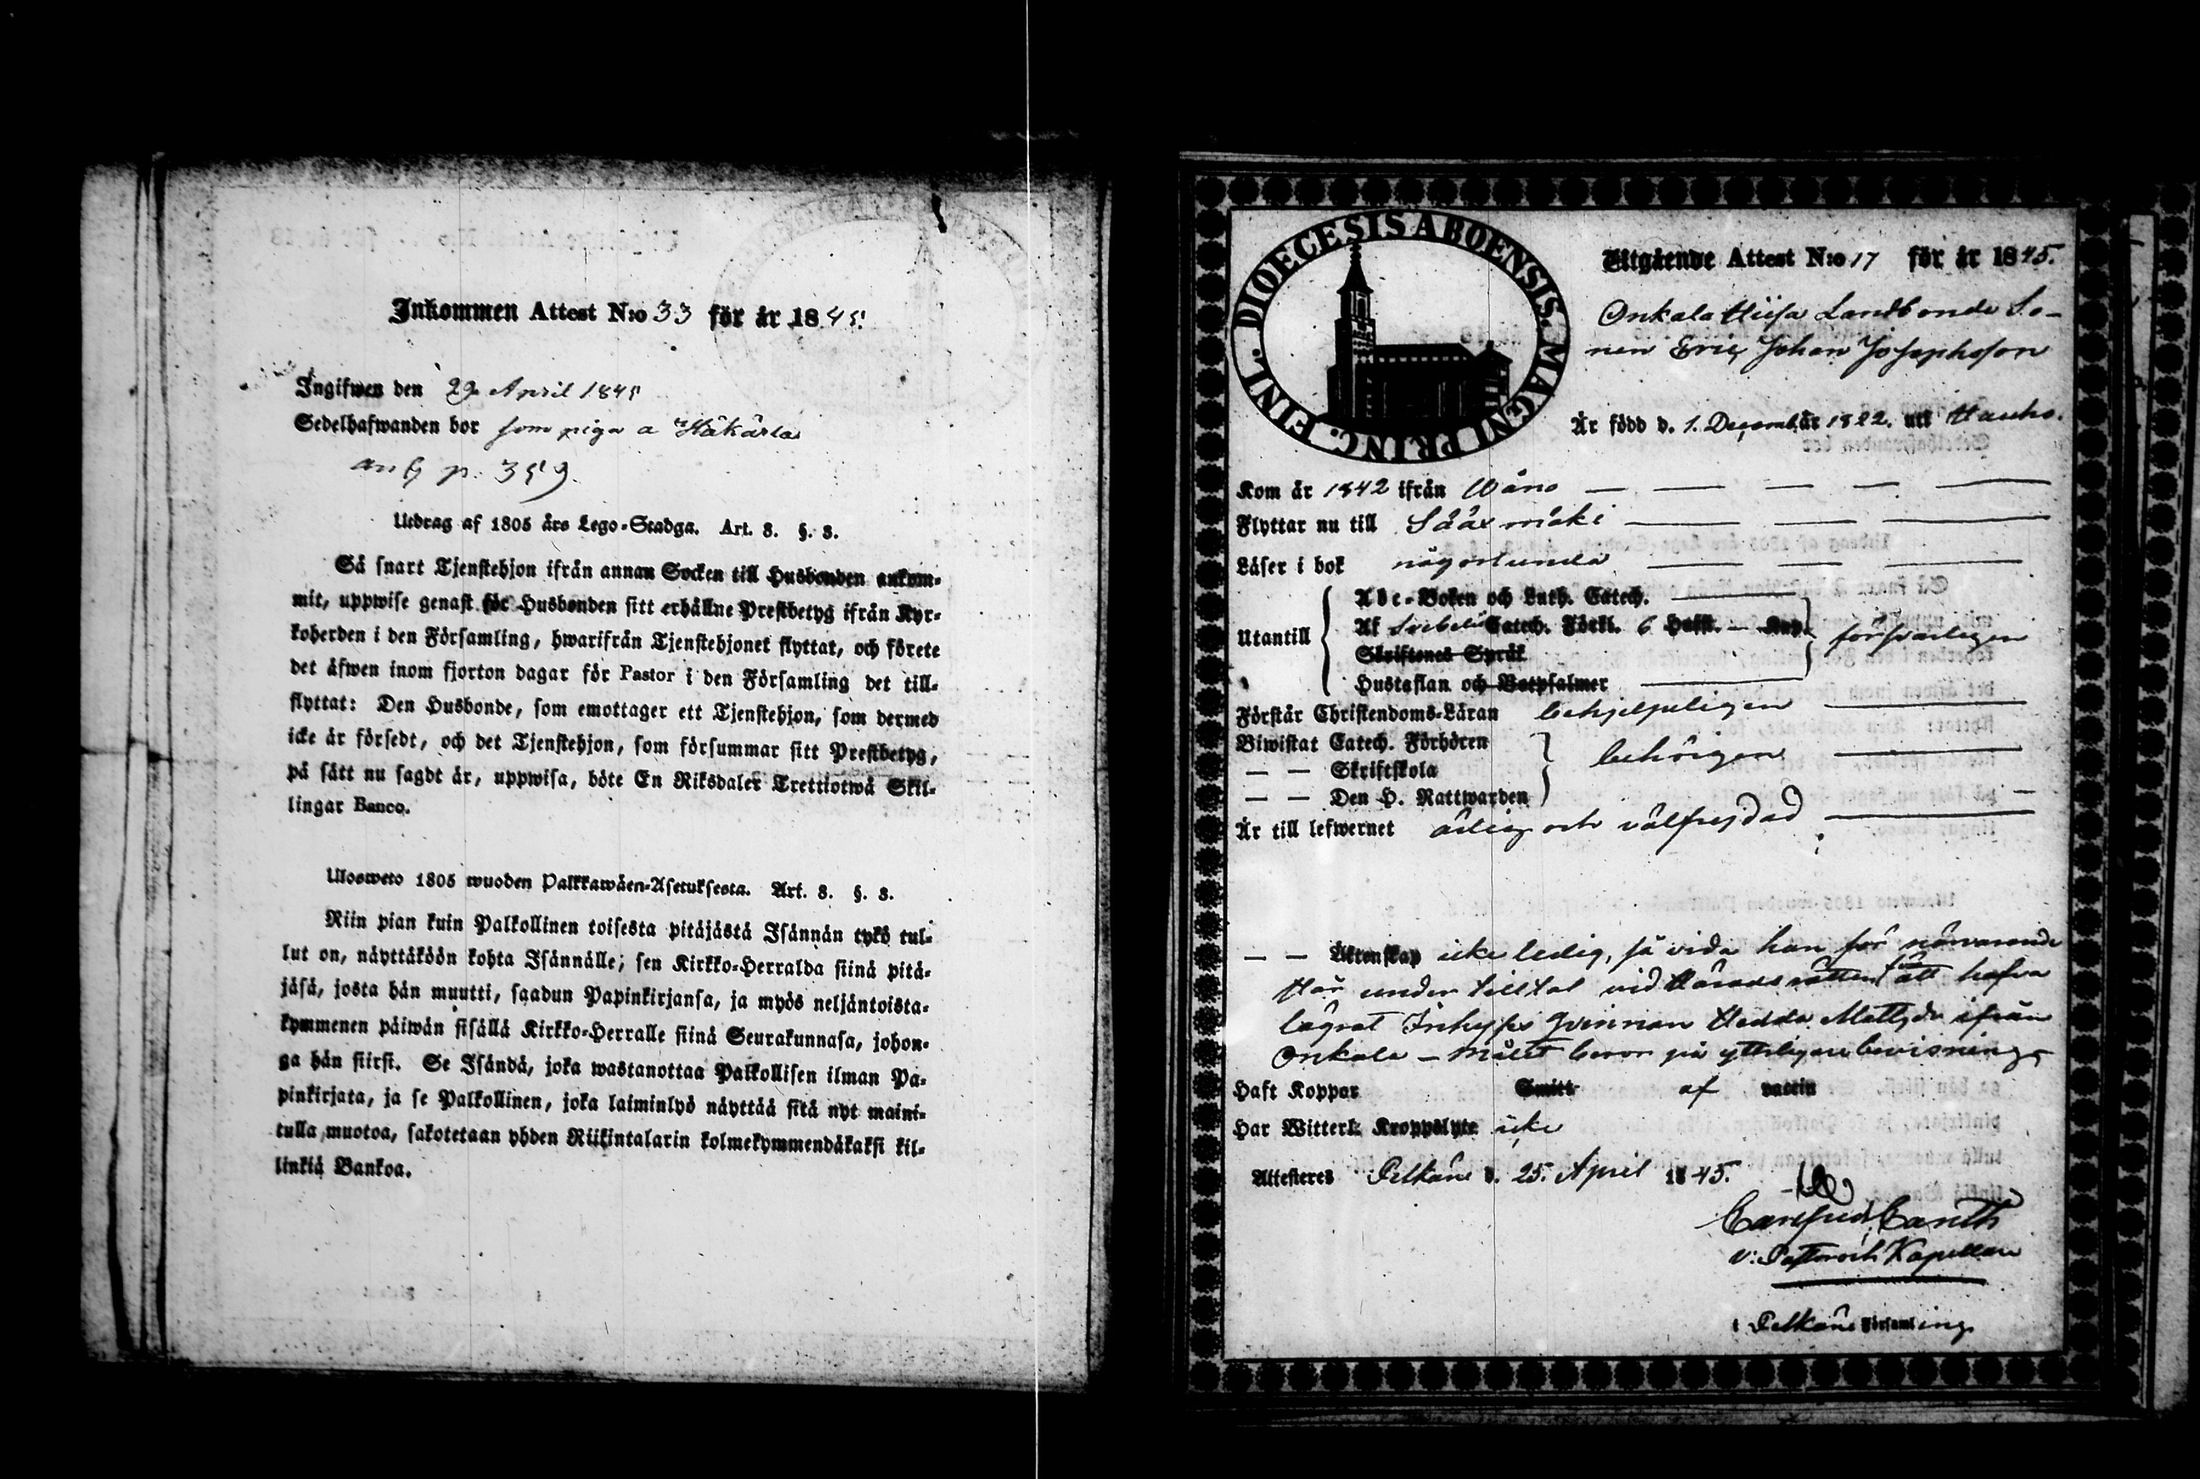 Inkommen Attest N:o 33 för år 1845.
Ingifwen den 29 April 1845
Sedelhafwanden bor som piga a Häkärla
p. 359.
Utdrag af 1805 års Lego-Stadga. Art. 8. §. 3.
Så snart Tjenstehjon ifrån annan Socken till Husbonden ankom-
mit, uppwise genast för Husbonden sitt erhållne Prestbetyg ifrån Kyr-
koherden i den Församling, hwarifrån Tjenstehjonet flyttat, och förete
det äfwen inom fjorton dagar för Pastor i den Församling det till-
flyttat: Den Husbonde, som emottager ett Tjenstehjon, som dermed
icke är försedt, och det Tjenstehjon, som försummar sitt Prestbetyg,
på sätt nu sagdt är, uppwisa, böte En Riksdaler Trettiotwå Skil-
lingar Banco.
Ulosweto 1805 wuoden Palkkawäen-Asetuksesta. Art. 8. §. 3.
Niin pian kuin Palkollinen toisesta pitäjästä Isännän tykö tul-
lut on, näyttäköön kohta Isännälle; sen Kirkko-Herralda siinä pitä-
jäsä, josta hän muutti, saadun Papinkirjansa, ja myös neljäntoista-
kymmenen päiwän sisällä Kirkko-Herralle siinä Seurakunnasa, johon-
ga hän siirsi. Se Isändä, joka wastanottaa Palkollisen ilman Pa-
pinkirjata, ja se Palkollinen, joka laiminlyö näyttää sitä nyt maini-
tulla muotoa, sakotetaan yhden Riikintalarin kolmekymmendäkaksi kil-
linkiä Bankoa.
DIOECESIS ABOENSIS. MAGNI PRINC. FINL.
Utgående Attest N:o 17 för år 1845.
Onkala Hiisa Landbonde So-
nen Eric Johan Josephsson
Är född d. 1. Decemb. år 1822. uti Hauho.
Kom år 1842 ifrån Wåno
Flyttar nu till Sääxmäki
Läser i bok någorlunda
Utantill
Abc-Boken och Luth. Catech.
Af Svebelii Catech. Förkl. 6 Hufst. — Kap.
Skriftenes Språk
Hustaflan och Botpsalmer
försvarligen
Förstår Christendoms-Läran behjelpeligen
Biwistat Catech. Förhören
— — Skriftskola
— — Den H. Nattwarden
behörigen
Är till lefwernet ärlig och välfrejdad
— — Äktenskap icke ledig, så vida han för närvarande
står under tilltal vid Häradsrätten för att hafva
lägrat Inhyses qvinnan Hedda Mattsdr ifrån
Onkala — målet beror på ytterligare bevisning.
Haft Koppor Smitt af vaccin
Har Witterl. Kroppslyte icke
Attesteres Pelkäne d. 25. April 1845.
Canth
V: Pastor och Kapellan
i Pelkäne Församling